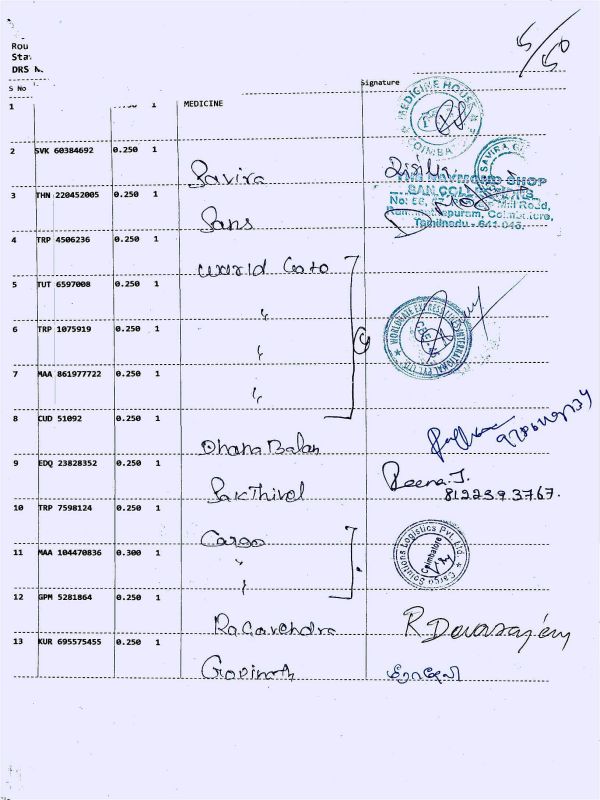 5/50
Rou
Sta
DRS
S No Signature
1 1 MEDICINE
MEDICINE HOUSE
COIMBA
2 SVK 60384692 0.250 1
Savira
SAVIRA
3 THN 220452005 0.250 1
Sans
THE RAYMOND SHOP
Mill Road,
Coimbatore,
Tamilnadu - 641 045.
4 TRP 4506236 0.250 1
World Gate
5 TUT 6597008 0.250 1
"
6 TRP 1075919 0.250 1
"
WORLDGATE EXPRESS LINES INTERNATIONAL PVT LTD
7 MAA 861977722 0.250 1
"
8 CUD 51092 0.250 1
Dhana Balan
9 EDQ 23828352 0.250 1
Sakthivel
Reena.J.
8122393767.
10 TRP 7598124 0.250 1
Cargo
11 MAA 104470836 0.300 1
"
"
Cargo Solutions Logistics Pvt. Ltd.
Coimbatore
12 GPM 5281864 0.250 1
Ragavendra
R Devarajan
13 KUR 695575455 0.250 1
Govinath